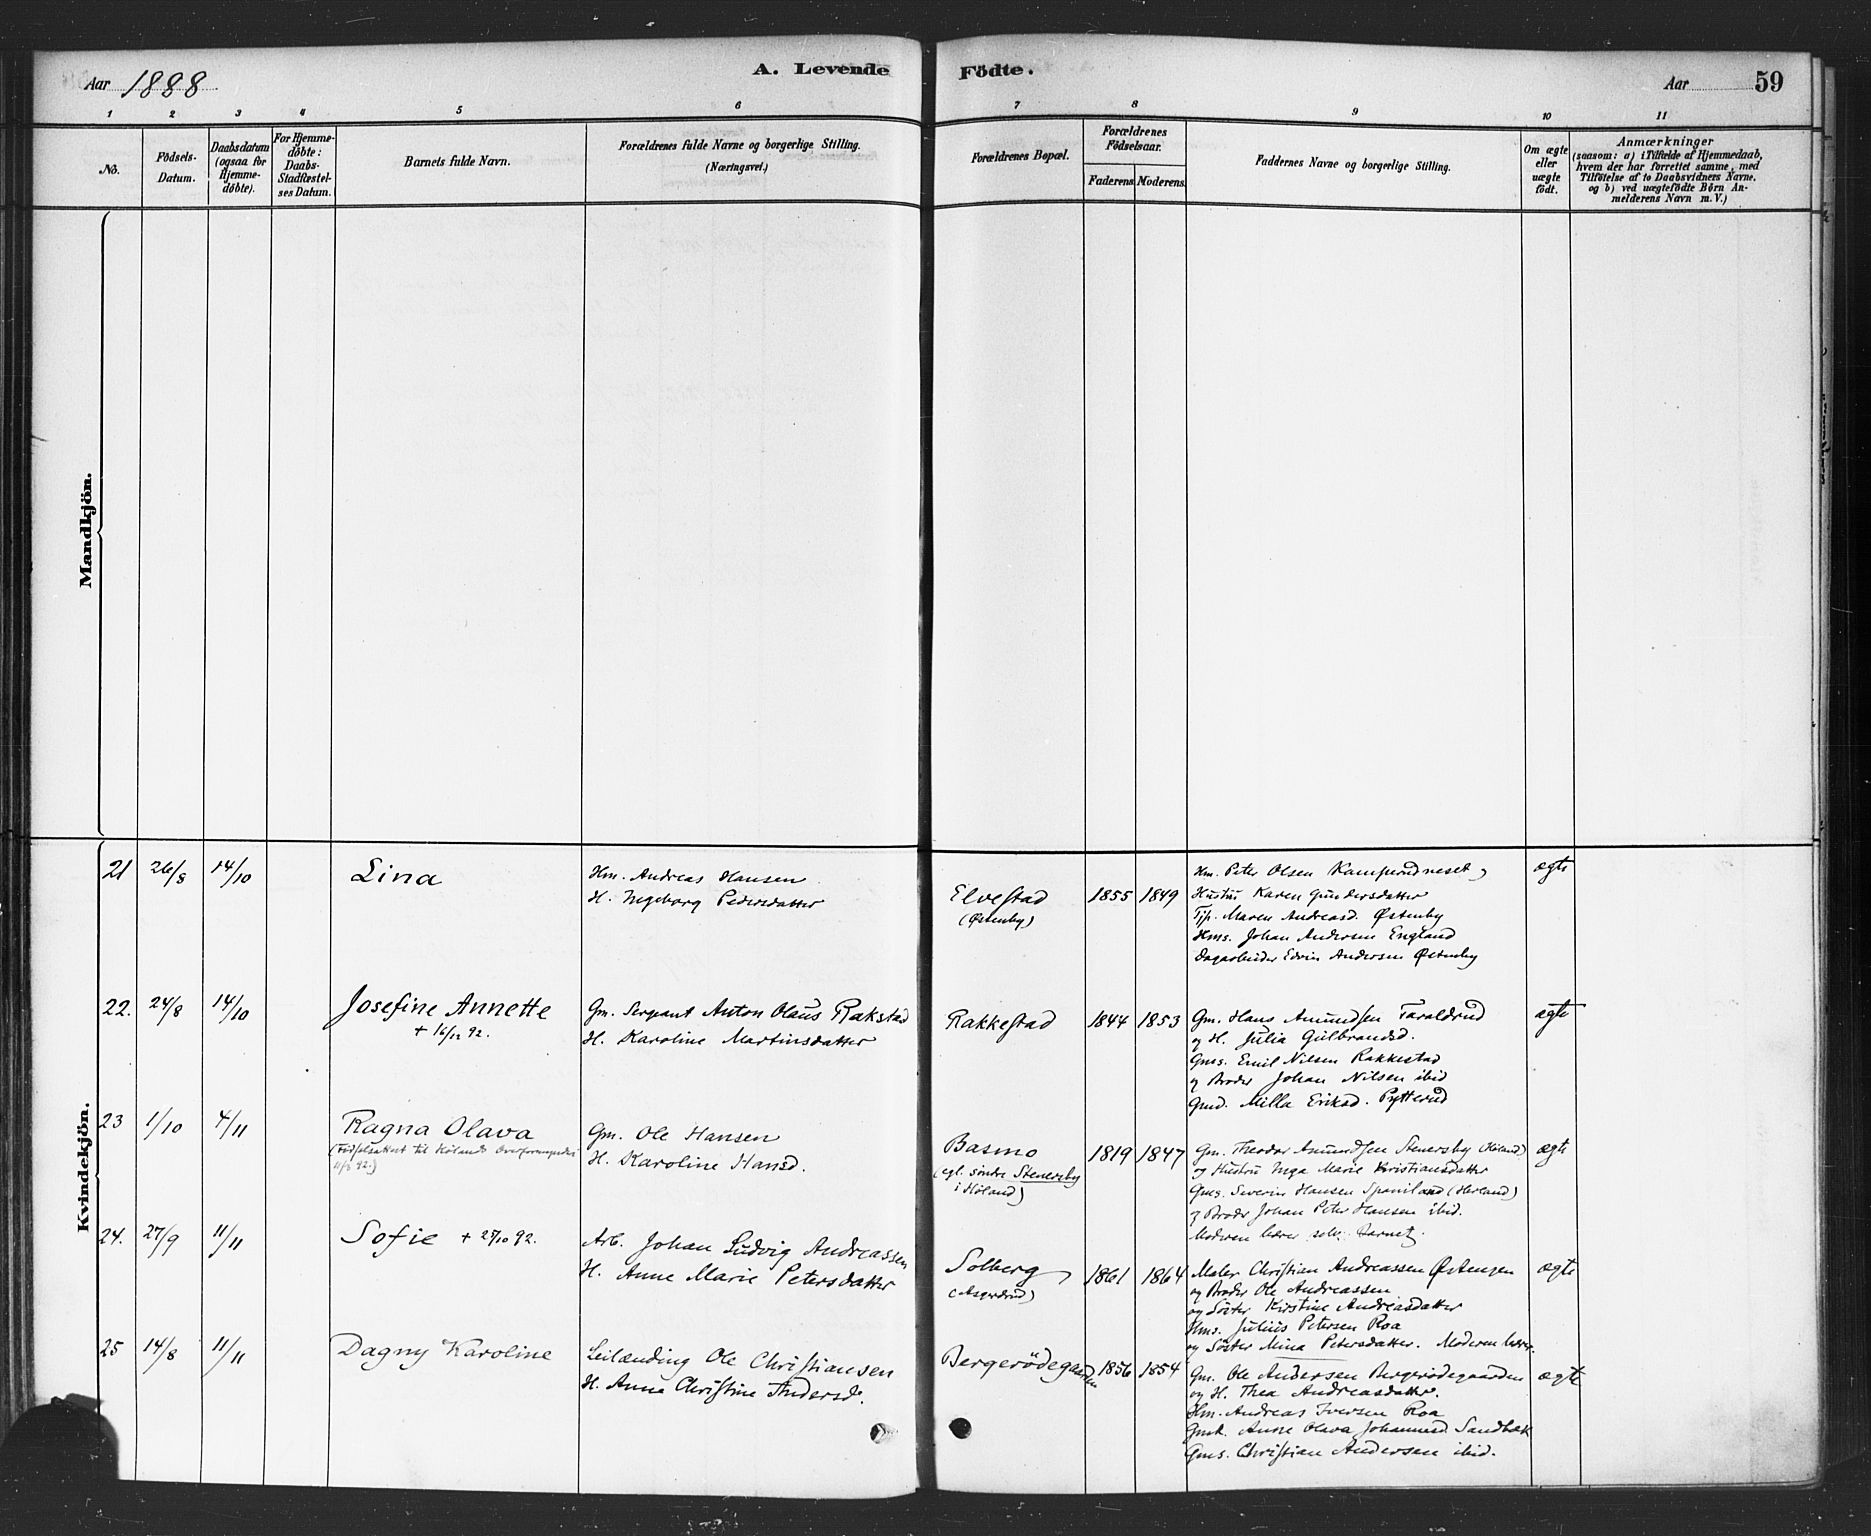 Aar 1888
A. Levende Födte.
Aar 59
1 2 3 4 5 6 7 8 9 10 11
No.
Födsels-Datum.
Daabsdatum (ogsaa for Hjemme-döbte).
For Hjemme-döbte: Daabs-Stadfæstel-ses Datum.
Barnets fulde Navn.
Forældrenes fulde Navne og borgerlige Stilling.
(Næringsvei.)
Forældrenes Bopæl.
Forældrenes Födselsaar.
Faderens. Moderens.
Faddernes Navne og borgerlige Stilling.
Om ægte eller uægte födt.
Anmærkninger
(saasom: a) i Tilfælde af Hjemmedaab,
hvem der har forrettet samme, med
Tilföielse af to Daabsvidners Navne.
og b) ved uægtefödte Börn An-
melderens Navn m. V.)
Mandkjön.
Kvindekjön.
21 26/8 14/10 Lina
Hm. Andreas Hansen
H. Ingeborg Pedersdatter
Elvestad
(Østenby)
1855 1849
Hm. Peter Olsen Kamperudneset,
Hustru Karen Gundersdatter
Tjp. Maren Andreasd. Østenby
Hms. Johan Andersen England
Dagarbeider Edvin Andersen Østenby
ægte
22. 24/8 14/10 Josefine Annette
+ 16/12 92.
Gm. Sergeant Anton Olaus Rakstad
H. Karoline Martinsdatter
Rakkestad
1844 1853
Gm. Hans Amundsen Taraldrud
og H. Julia Gulbrandsd.
Gms. Emil Nilsen Rakkestad
og Broder Johan Nilsen ibid
Gmd. Milla Eriksd. Pytterud
ægte
23 1/10 4/11 Ragna Olava
(Fødselsattest til Hølands Overformynderi
11/3 92.)
Gm. Ole Hansen
H. Karoline Hansd.
Basmo
(egl. søndre Stenersby
i Høland)
1819 1847
Gm. Theodor Amundsen Stenersby (Høland)
og Hustru Inga Marie Kristiansdatter
Gms. Severin Hansen Spaniland (Herland)
og Broder Johan Peter Hansen ibid.
Moderen bærer selv Barnet.
ægte
24. 27/9 11/11 Sofie + 27/10 92.
Arb. Johan Ludvig Andreassen
H. Anne Marie Petersdatter
Solberg
(Asgerdrud)
1861 1864
Maler Christian Andreassen Østengen
og Broder Ole Andreassen
og Søster Kirstine Andreasdatter
Hms. Julius Petersen Roa
og Søster Mina Petersdatter. Moderen bærer.
ægte
25 14/8 11/11 Dagny Karoline
Leilænding Ole Christiansen
H. Anna Christine Andersd.
Bergerødegaarden
1856 1854
Gm. Ole Andersen Bergerødegaarden
og H. Thea Andreasdatter.
Hm. Andreas Iversen Roa
Gmk. Anne Olava Johannesd. Sandbæk
Gms. Christian Andersen ibid.
ægte